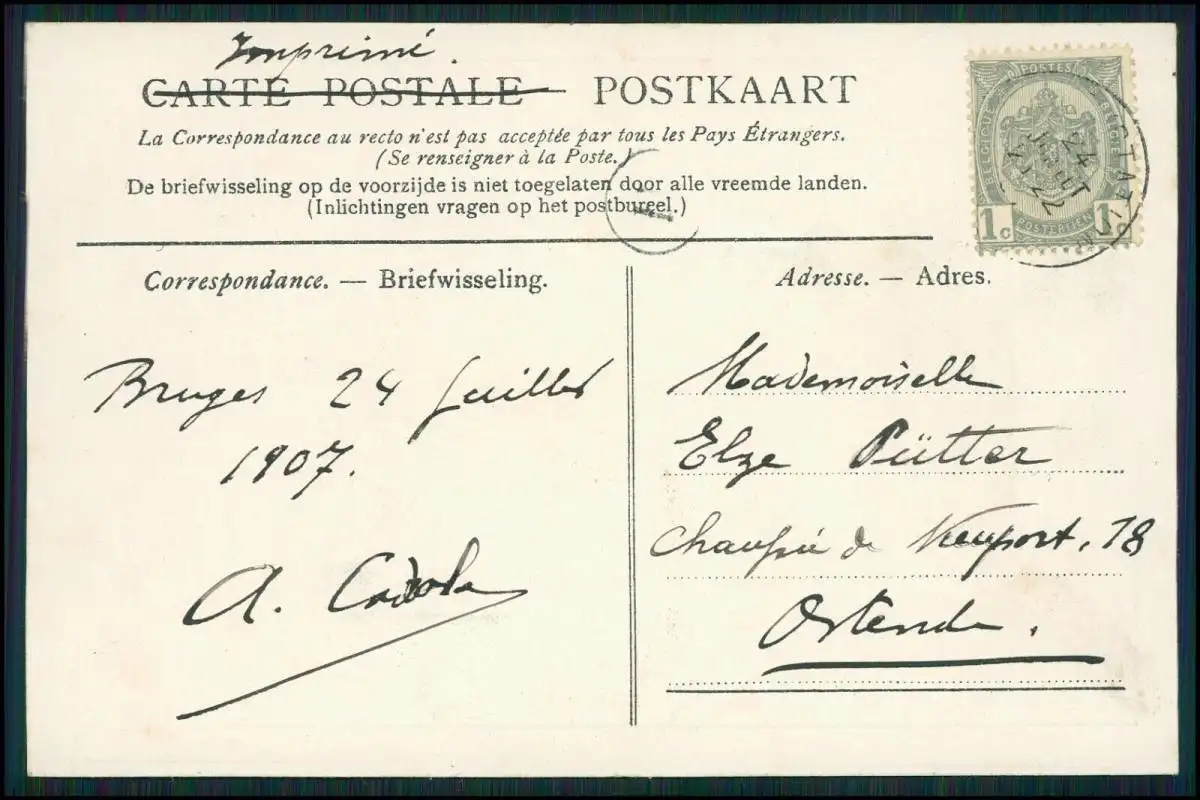 Imprimé.
CARTE POSTALE POSTKAART
La Correspondance au recto n'est pas acceptée par tous les Pays Étrangers.
(Se renseigner à la Poste.)
De briefwisseling op de voorzijde is niet toegelaten door alle vreemde landen.
(Inlichtingen vragen op het postbureel.)
POSTES
BELGIQUE BELGIË
1c 1c
POSTERIJEN
24
JUIL
Correspondance. — Briefwisseling.
Bruges 24 Juillet
1907.
A.
Adresse. — Adres.
Mademoiselle
Elze Pütter
Chaussée de Nieuport, 78
Ostende.